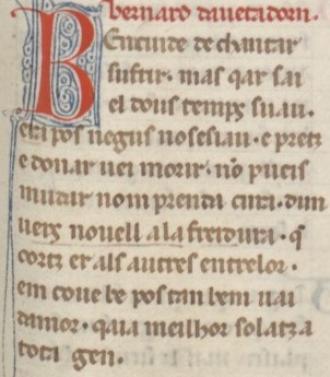 Bernard dauetadorn.
BEncuide de chantar
sufrir. mas qar sai
el dous temps suau.
era pos negus nosesiau. e pretz
e donar uei morir. nō pueis
mudar nom prenda cura. dun
uers nouell ala freidura. q̄
cortz er als autres entrelor.
em coue be pos tan bem uai
damor. qaia meilhor solatz a
tota gen.